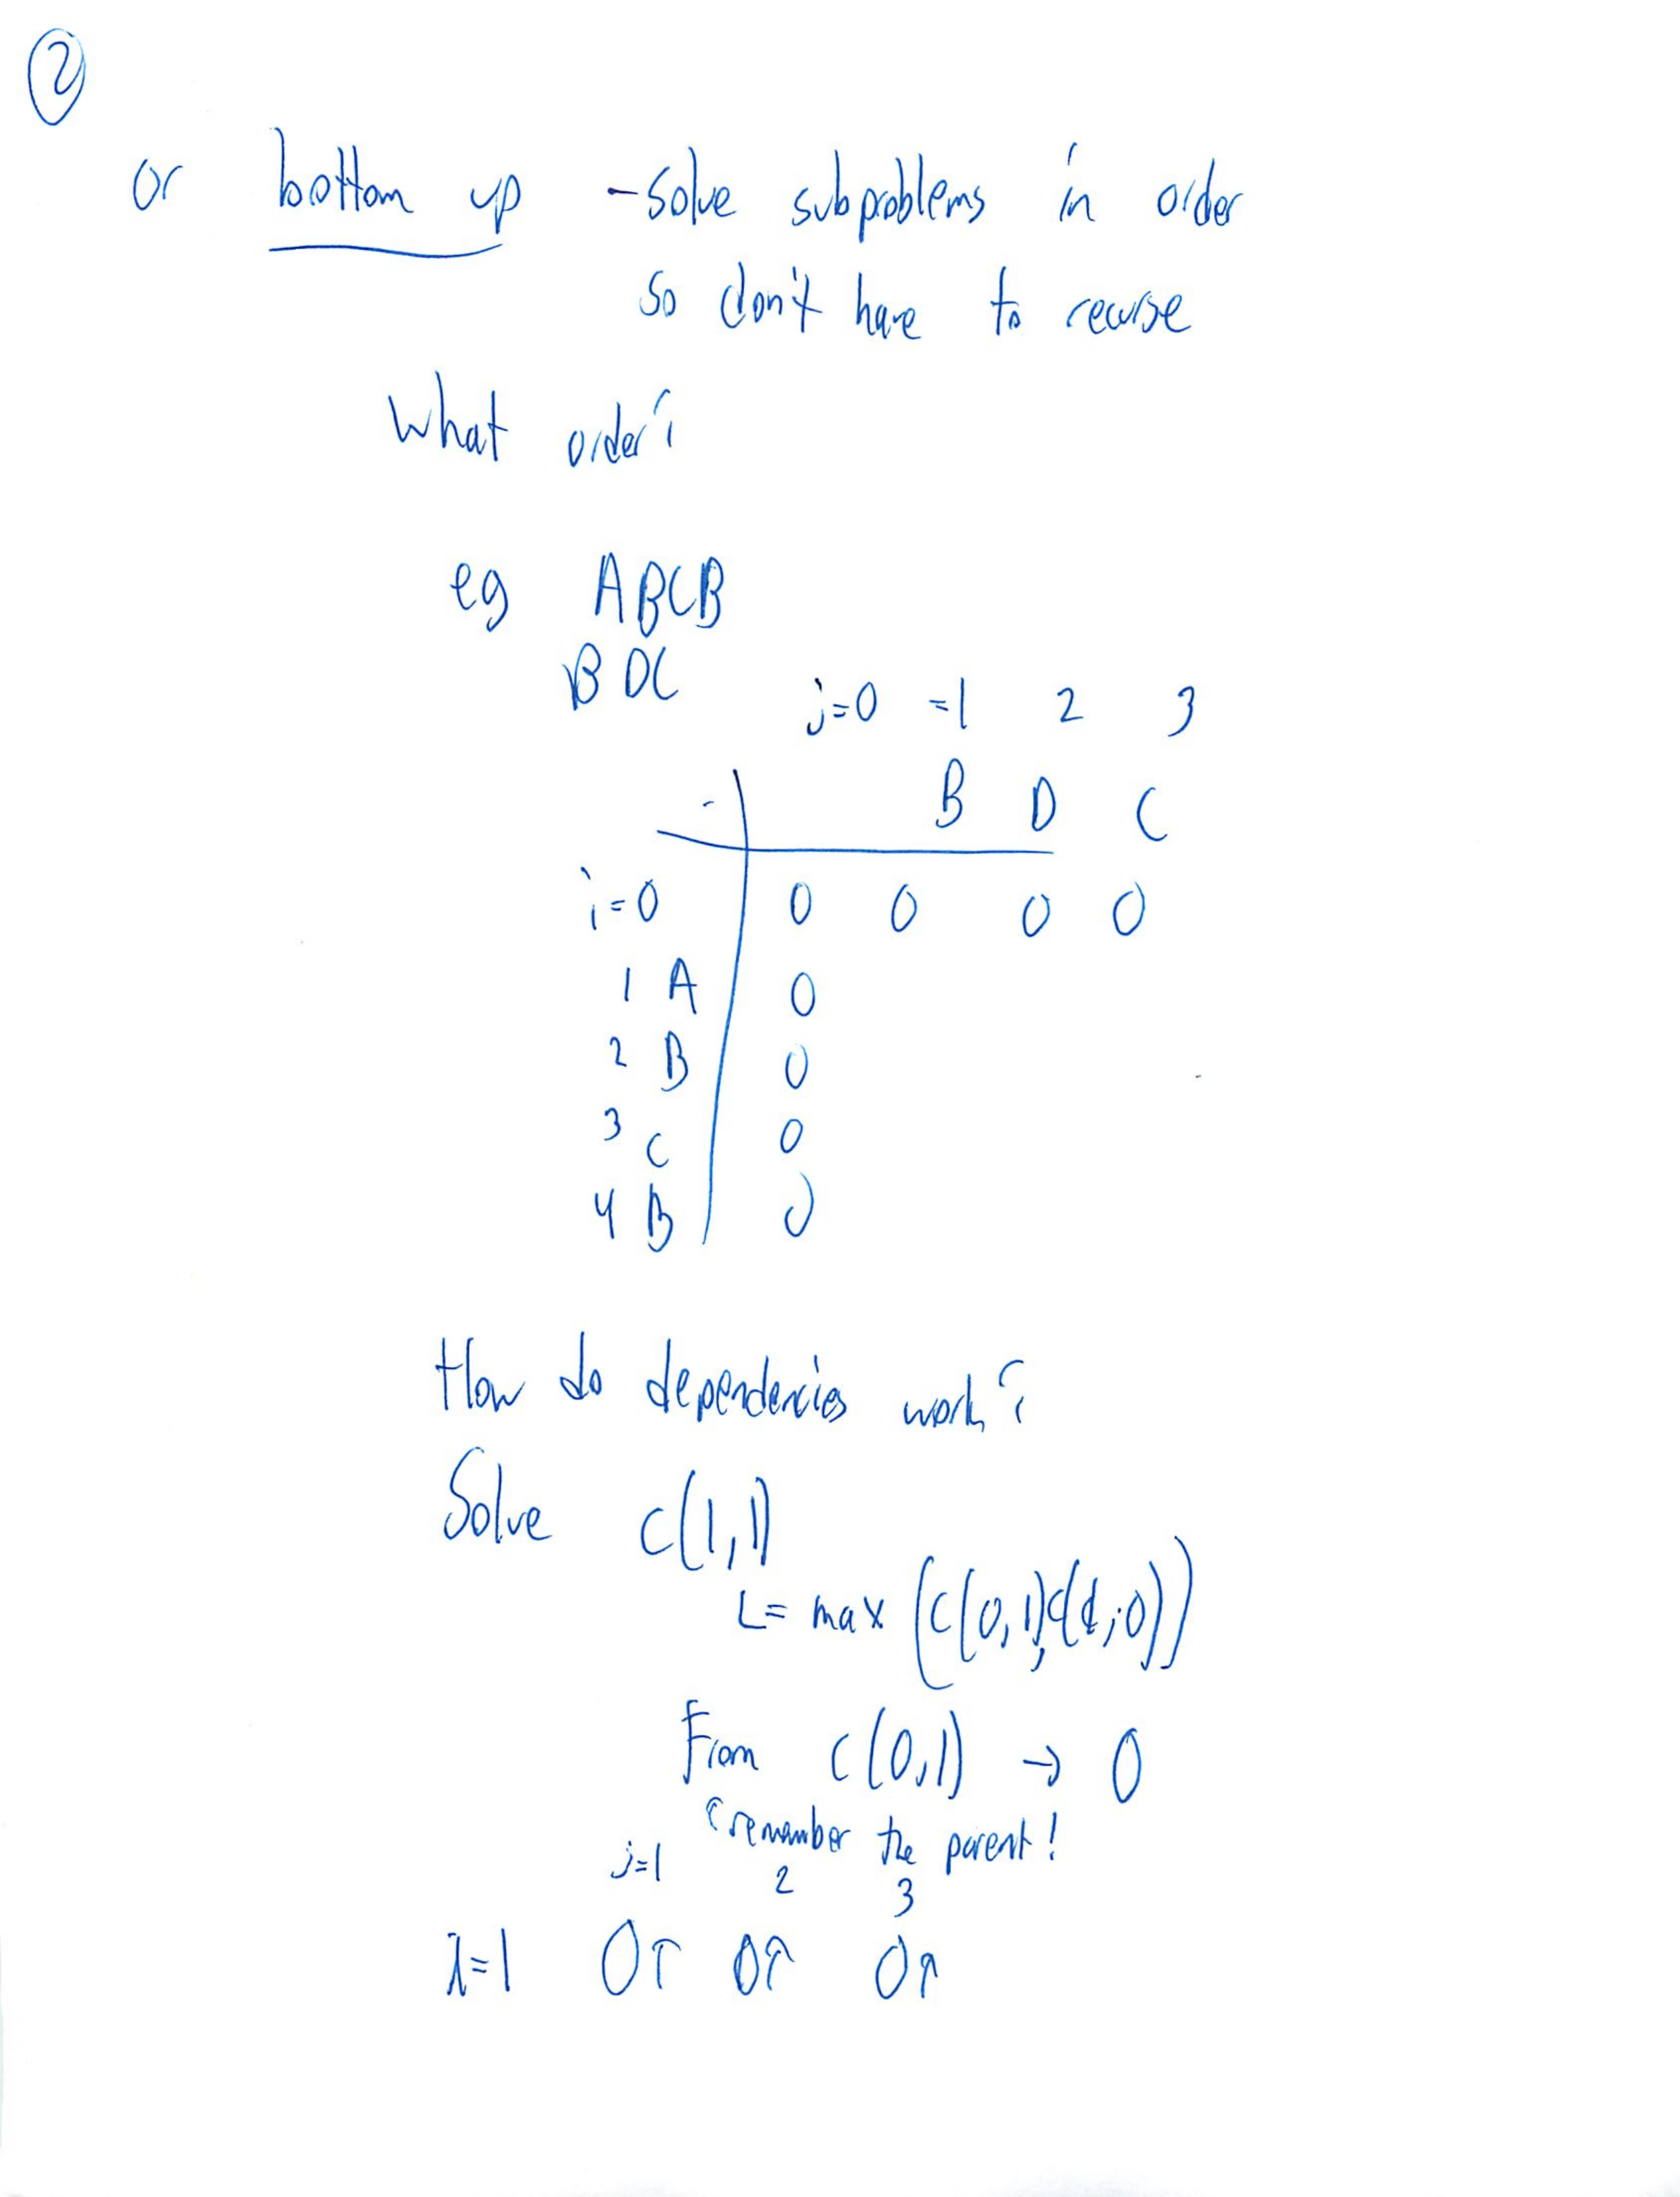 2
or bottom up - solve subproblems in order
so don't have to recurse
What order?
eg ABCB
BDC
j=0 =1 2 3
B D C
i=0 0 0 0 0
1 A 0
2 B 0
3 C 0
4 B 0
How do dependencies work?
Solve c(1,1)
L= max (c(0,1), c(1,0))
From c(0,1) → 0
↑ remember the parent!
j=1 2 3
i=1 0↑ 0↑ 0↑